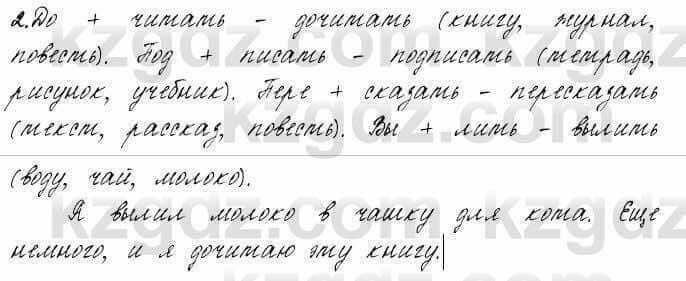 2. До + читать - дочитать (книгу, журнал,
повесть). Под + писать - подписать (тетрадь,
рисунок, учебник). Пере + сказать - пересказать
(текст, рассказ, повесть). Вы + лить - вылить
(воду, чай, молоко).
Я вылил молоко в чашку для кота. Еще
немного, и я дочитаю эту книгу.